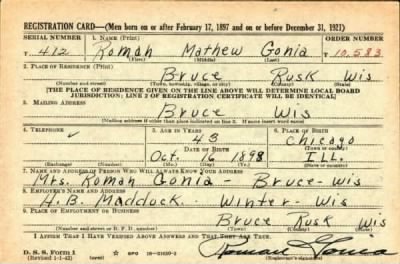 REGISTRATION CARD—(Men born on or after February 17, 1897 and on or before December 31, 1921)
SERIAL NUMBER 1. NAME (Print) ORDER NUMBER
T 412 Roman Mathew Gonia T 10,583
(First) (Middle) (Last)
2. PLACE OF RESIDENCE (Print)
Bruce Rusk Wis
(Number and street) (Town, township, village, or city) (County) (State)
[THE PLACE OF RESIDENCE GIVEN ON THE LINE ABOVE WILL DETERMINE LOCAL BOARD
JURISDICTION; LINE 2 OF REGISTRATION CERTIFICATE WILL BE IDENTICAL]
3. MAILING ADDRESS
Bruce Wis
(Mailing address if other than place indicated on line 2. If same insert word same)
4. TELEPHONE 5. AGE IN YEARS 6. PLACE OF BIRTH
43 Chicago
DATE OF BIRTH (Town or county)
Oct. 16 1898 ILL.
(Exchange) (Number) (Mo.) (Day) (Yr.) (State or country)
7. NAME AND ADDRESS OF PERSON WHO WILL ALWAYS KNOW YOUR ADDRESS
Mrs. Roman Gonia - Bruce - Wis
8. EMPLOYER'S NAME AND ADDRESS
H. B. Maddock - Winter - Wis
9. PLACE OF EMPLOYMENT OR BUSINESS
Bruce Rusk Wis
(Number and street or R. F. D. number) (Town) (County) (State)
I AFFIRM THAT I HAVE VERIFIED ABOVE ANSWERS AND THAT THEY ARE TRUE.
D. S. S. Form 1
(Revised 1-1-42) (over) GPO 16—21630-2 Roman Gonia